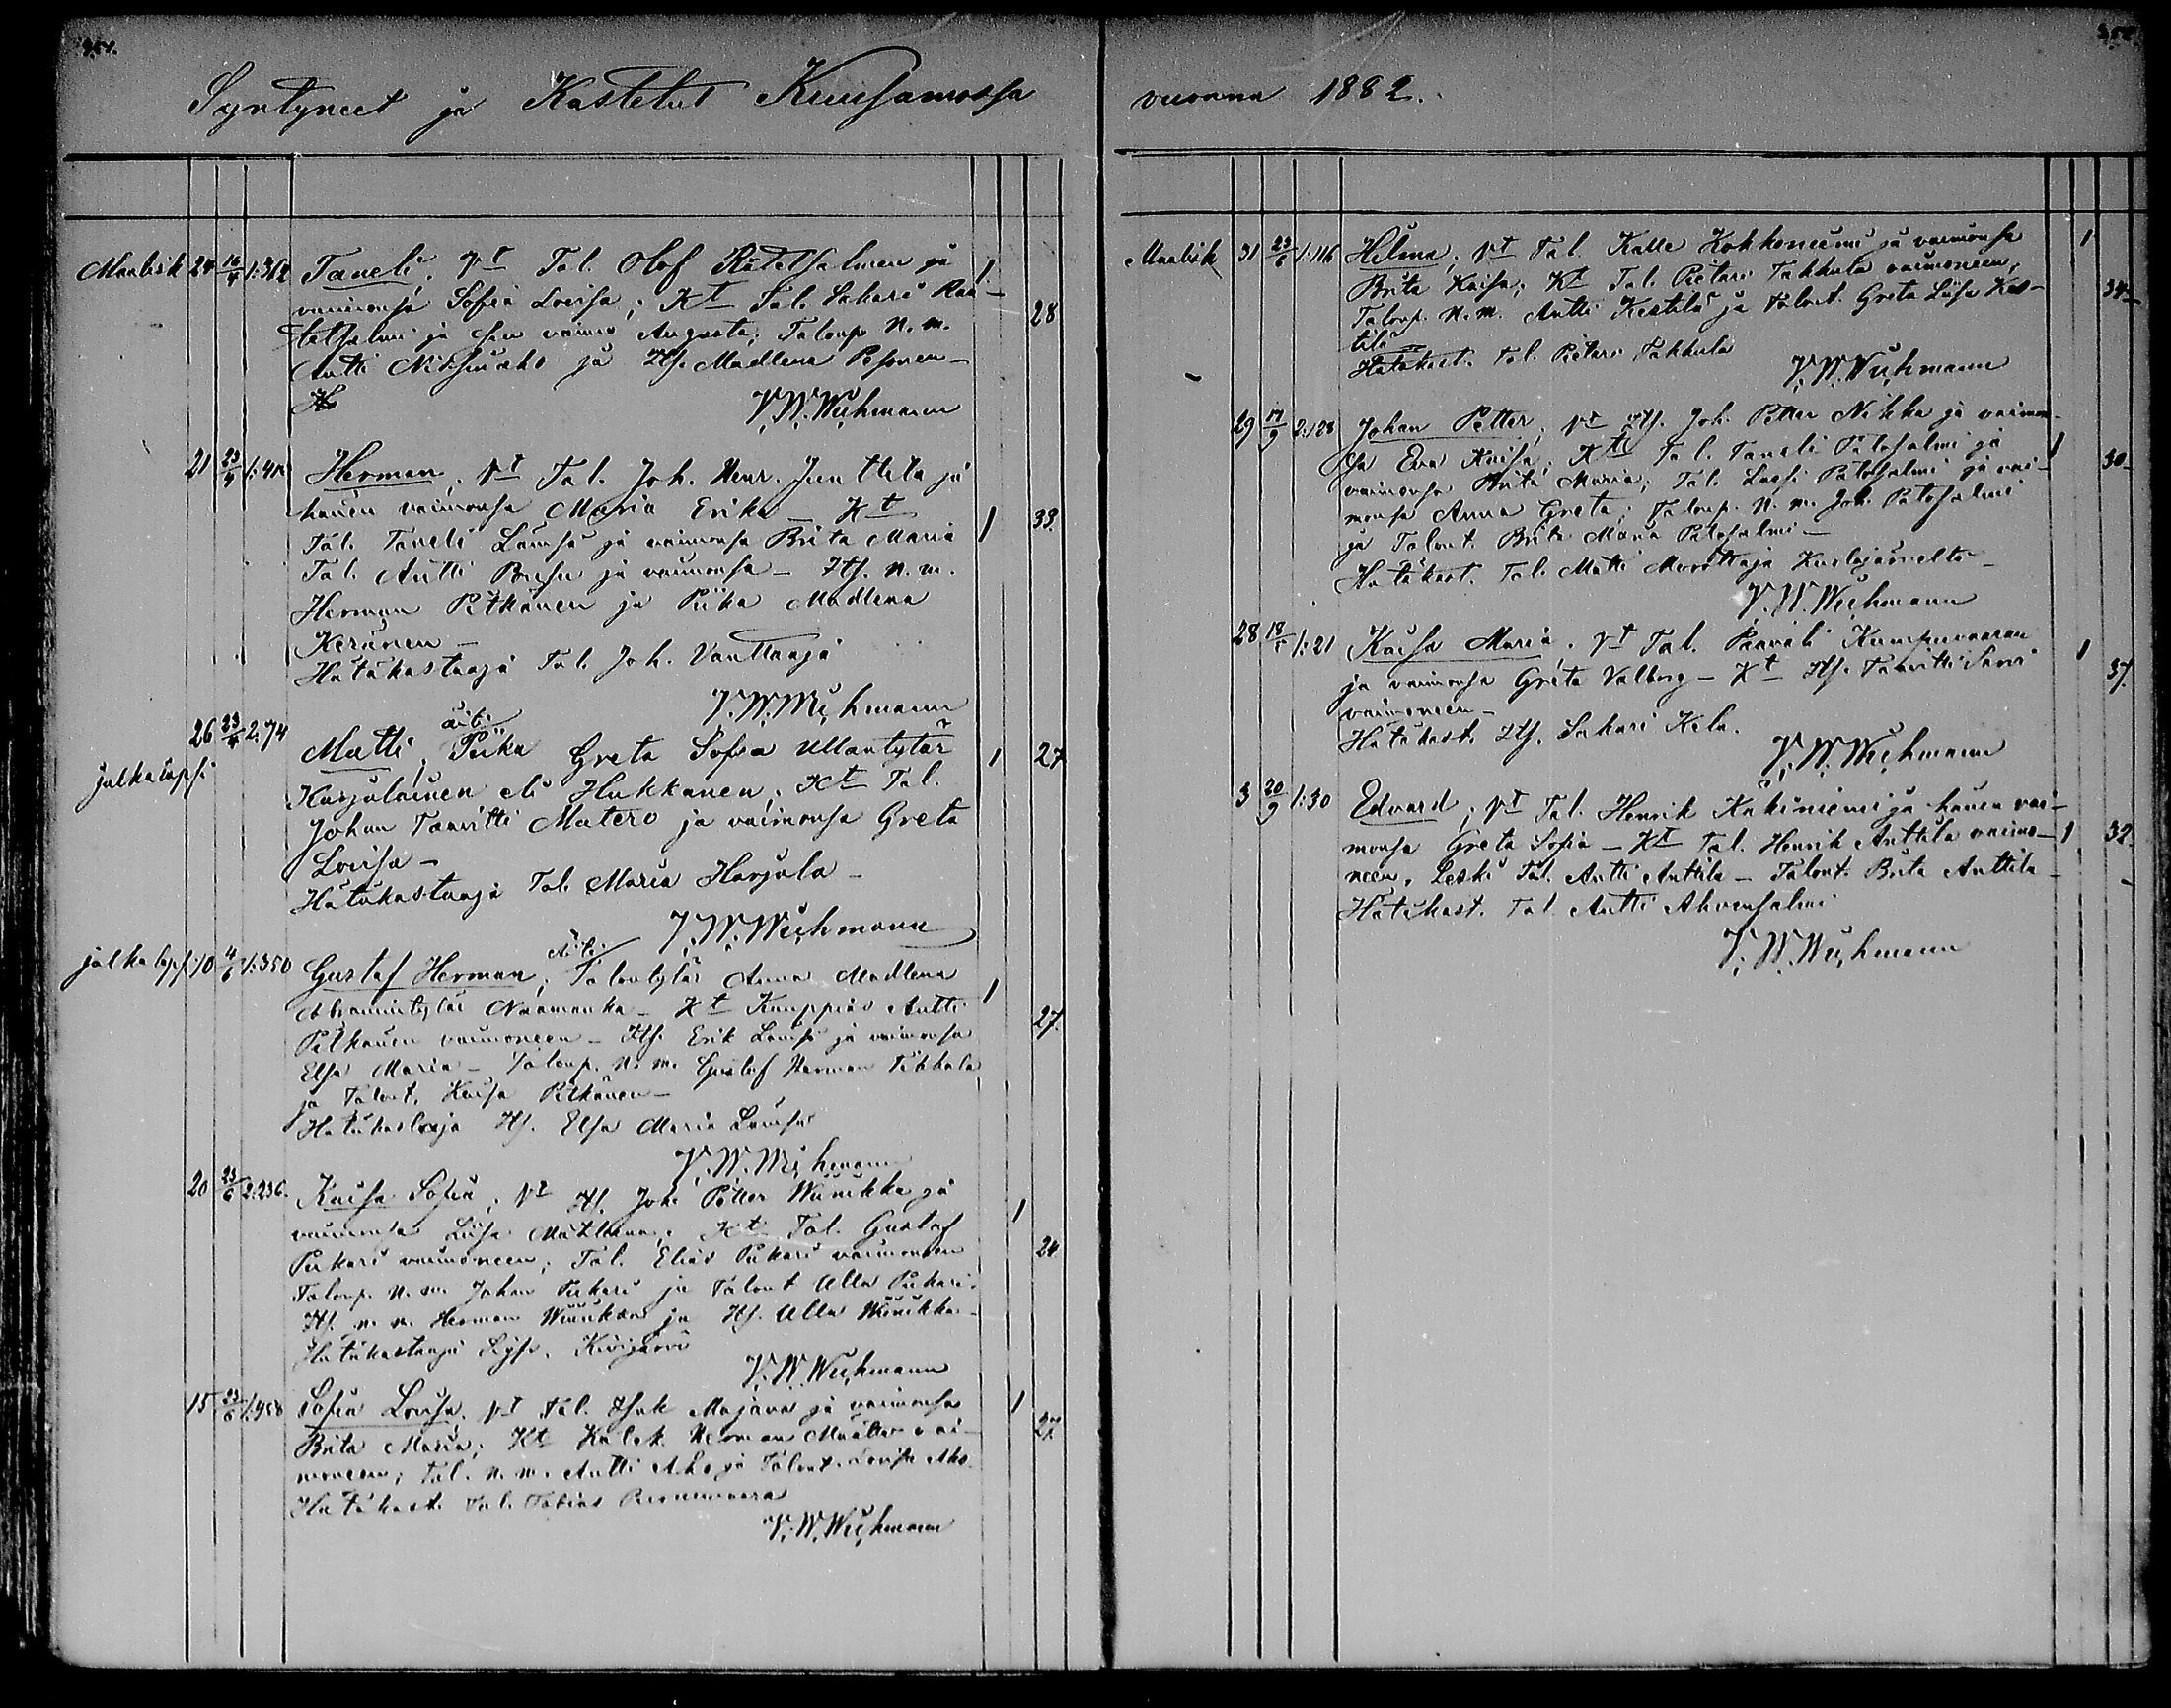 Syntyneet ja Kastetut Kuusamossa
Maalisk 24 16/4 1:362 Taneli; Vt Tal. Olof Rätelsalmen ja 1
vaimonsa Sofia Lovisa; Kt Tal. Sakari Raa- 28
telsalmi ja sen vaimo Augusta; Talonp. N.m.
Antti Nissinaho ja Its. Madlena Pesonen-
V. W. Wichmann
21 23/4 Herman; Vt Tal. Joh. Henr. Junttila ja
hänen vaimonsa Maria Erika - Kt
Tal. Taneli Lämsä ja vaimonsa Brita Maria 1 33.
Tal. Antti ja vaimonsa - Its. N.m.
Herman Pitkänen ja Piika Madlena
Keränen -
Hätäkastaaja Tal. Joh. Vanttaaja
V. W. Wichmann
26 23/4 2:74 Matti; äiti: Piika Greta Sofia Ullantytär 1 27
jalkalapsi Karjalainen eli Hukkanen; Kt Tal.
Johan Taavitti Matero ja vaimonsa Greta
Lovisa -
Hätäkastaaja Tal. Maria Harjula -
V. W. Wichmann
jalkalapsi 10 4/6 1:350 Gustaf Herman; Äiti: Talontytär Anna Madlena
Abramintytär Naamanka - Kt Kauppias Antti 1
Pitkänen vaimoneen - Its. Erik Lämsä ja vaimonsa 27.
Elsa Maria - Talonp. N.m. Gustaf Herman Tikkala
ja Talont. Kaisa Pitkänen -
Hätäkastaaja Its. Elsa Maria Lämsä
V. W. Wichmann
20 23/6 2:236. Kaisa Sofia; Vt Its. Joh. Petter Wiinikka ja 1
vaimonsa Liisa Mathleena; Kt Tal. Gustaf
Pukari vaimoneen; Tal. Elias Pukari vaimoneen 24
Talonp. N.m. Johan Pukari ja Talont Ulla Pukari.
Its. n.m. Herman Wiinikka ja Its. Ulla Wiinikka -
Hätäkastaaja Kivijärvi
V. W. Wichmann
15 23/6 1:458 Sofia Lovisa; Vt Tal. Isak Majava ja vaimonsa 1
Brita Maria; Kt Herman Määttä vai- 27.
moneen; Tal. n.m. Antti Aho ja Talont. Lovisa Aho
Hätäkast. Tal. Tobias
V. W. Wichmann
vuonna 1882.
Maalisk 31 23/6 1:116 Helma; Vt Tal. Kalle Kokkoniemi ja vaimonsa 1
Brita Kaisa; Kt Tal. Pietari Takkula vaimoneen; 34
Talonp. N.m. Antti Kestilä ja Talont. Greta Liisa Kes-
tilä
Hätäkast. Tal. Pietari Takkula
V. W. Wichmann
29 17/9 2:128 Johan Petter; Vt Its. Joh. Petter Nikka ja vaimon-
sa Eva Kaisa; Kt Tal. Taneli Patosalmi ja 1
vaimonsa Brita Maria; Tal. Lassi Patosalmi ja vai- 30
monsa Anna Greta; Talonp. N.m. Joh. Patosalmi
ja Talont. Brita Maria Patosalmi -
Hätäkast. Tal. Matti Morottaja Kuolajärveltä -
V. W. Wichmann
28 1:21 Kaisa Maria. Vt Tal. Paavali Kumpuvaaran 1
ja vaimonsa Greta Valborg - Kt Its. Taavitti 37.
vaimoneen -
Hätäkast. Its. Sakari Kela.
V. W. Wichmann
3 20/9 1:30 Edvard; Vt Tal. Henrik Käkiniemi ja hänen vai-
monsa Greta Sofia - Kt Tal. Henrik Anttila vaimo- 1 32.
neen. Leski Tal. Antti Anttila - Talont. Brita Anttila -
Hätäkast. Tal. Antti Ahvensalmi
V. W. Wichmann